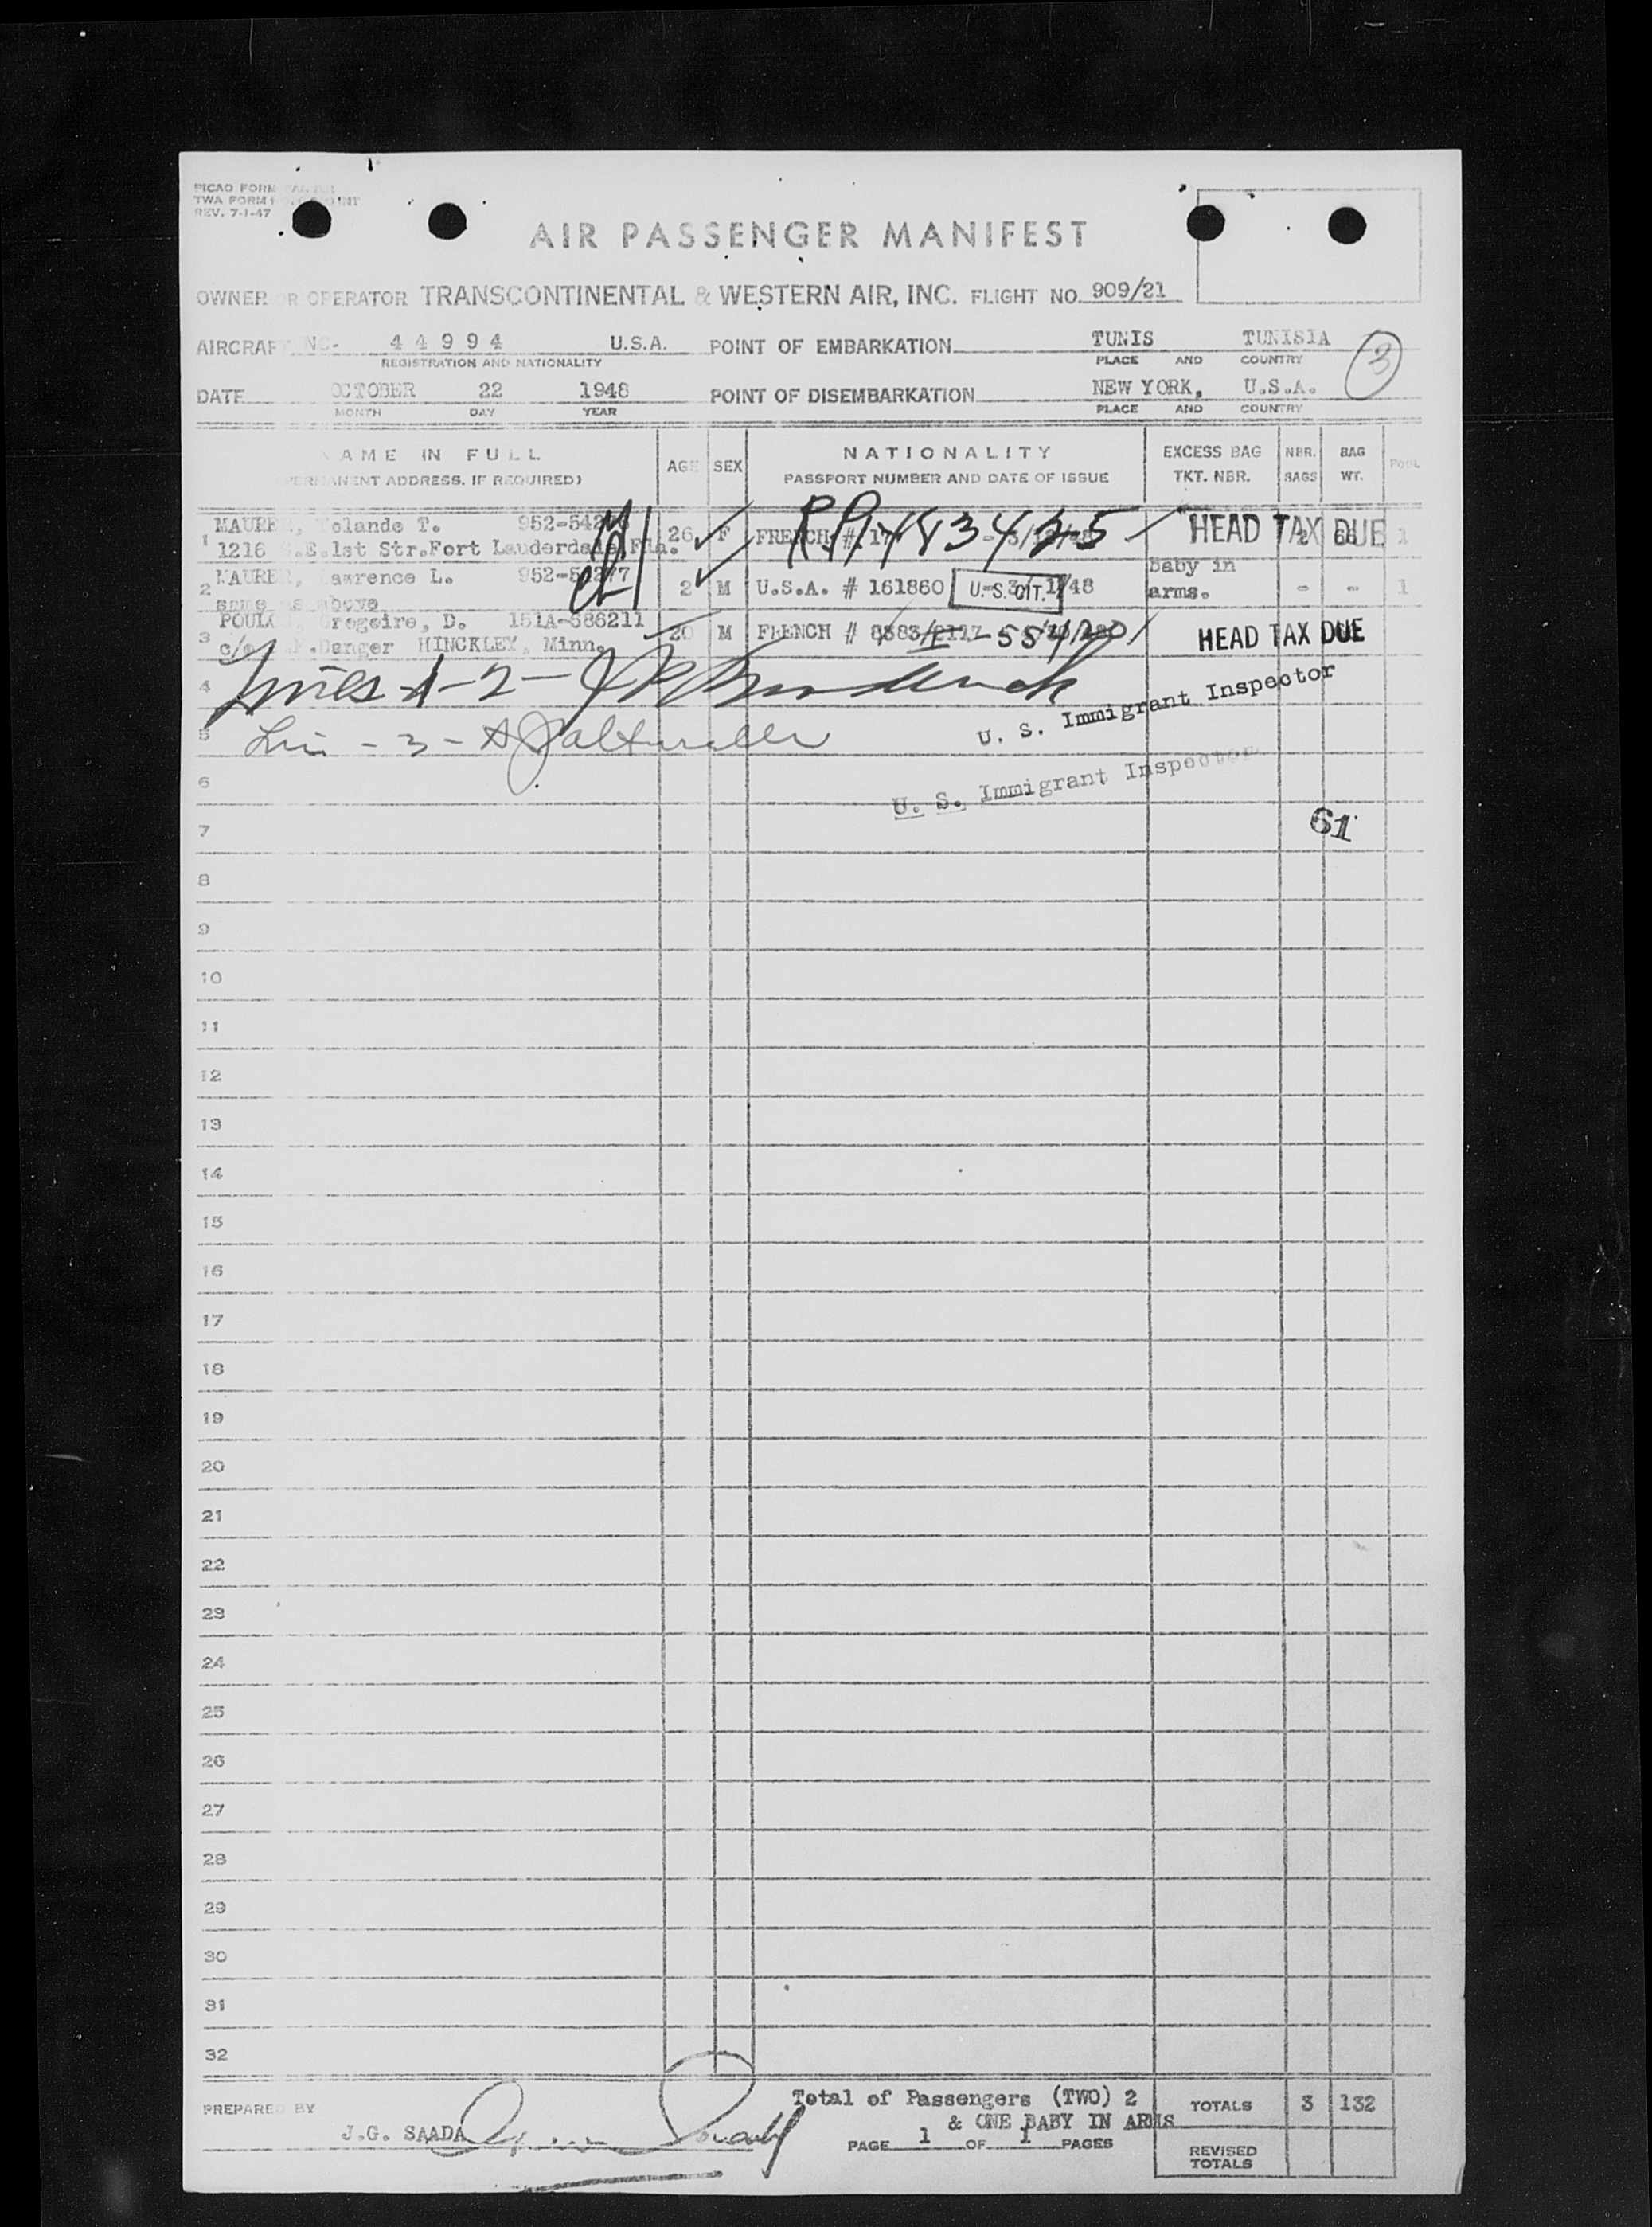 PICAO FORM
TWA FORM
REV. 7-1-47
AIR PASSENGER MANIFEST
OWNER OR OPERATOR TRANSCONTINENTAL & WESTERN AIR, INC. FLIGHT NO. 909/21
AIRCRAFT NO. 44994 U.S.A. POINT OF EMBARKATION TUNIS TUNISIA
REGISTRATION AND NATIONALITY PLACE AND COUNTRY
3
DATE OCTOBER 22 1948 POINT OF DISEMBARKATION NEW YORK, U.S.A.
MONTH DAY YEAR PLACE AND COUNTRY
NAME IN FULL AGE SEX NATIONALITY EXCESS BAG NBR. BAG POOL
(PERMANENT ADDRESS, IF REQUIRED) PASSPORT NUMBER AND DATE OF ISSUE TKT. NBR. BAGS WT.
1 MAURER, Yolande T. 26 F FRENCH # HEAD TAX DUE 1
1216 S.E.1st Str.Fort Lauderdale Fla.
2 MAURER, Lawrence L. 2 M U.S.A. # 161860 U.S. CIT. 48 Baby in arms. - - 1
same as above
3 Gregoire, D. 151A-586211 20 M FRENCH # HEAD TAX DUE
c/o Danger HINCKLEY, Minn.
4 Lines 1-2-
U. S. Immigrant Inspector
5 - 3 -
6
U. S. Immigrant Inspector
7 61
8
9
10
11
12
13
14
15
16
17
18
19
20
21
22
23
24
25
26
27
28
29
30
31
32
PREPARED BY J.G. SAADA
Total of Passengers (TWO) 2
& ONE BABY IN ARMS
PAGE 1 OF 1 PAGES
TOTALS 3 132
REVISED TOTALS